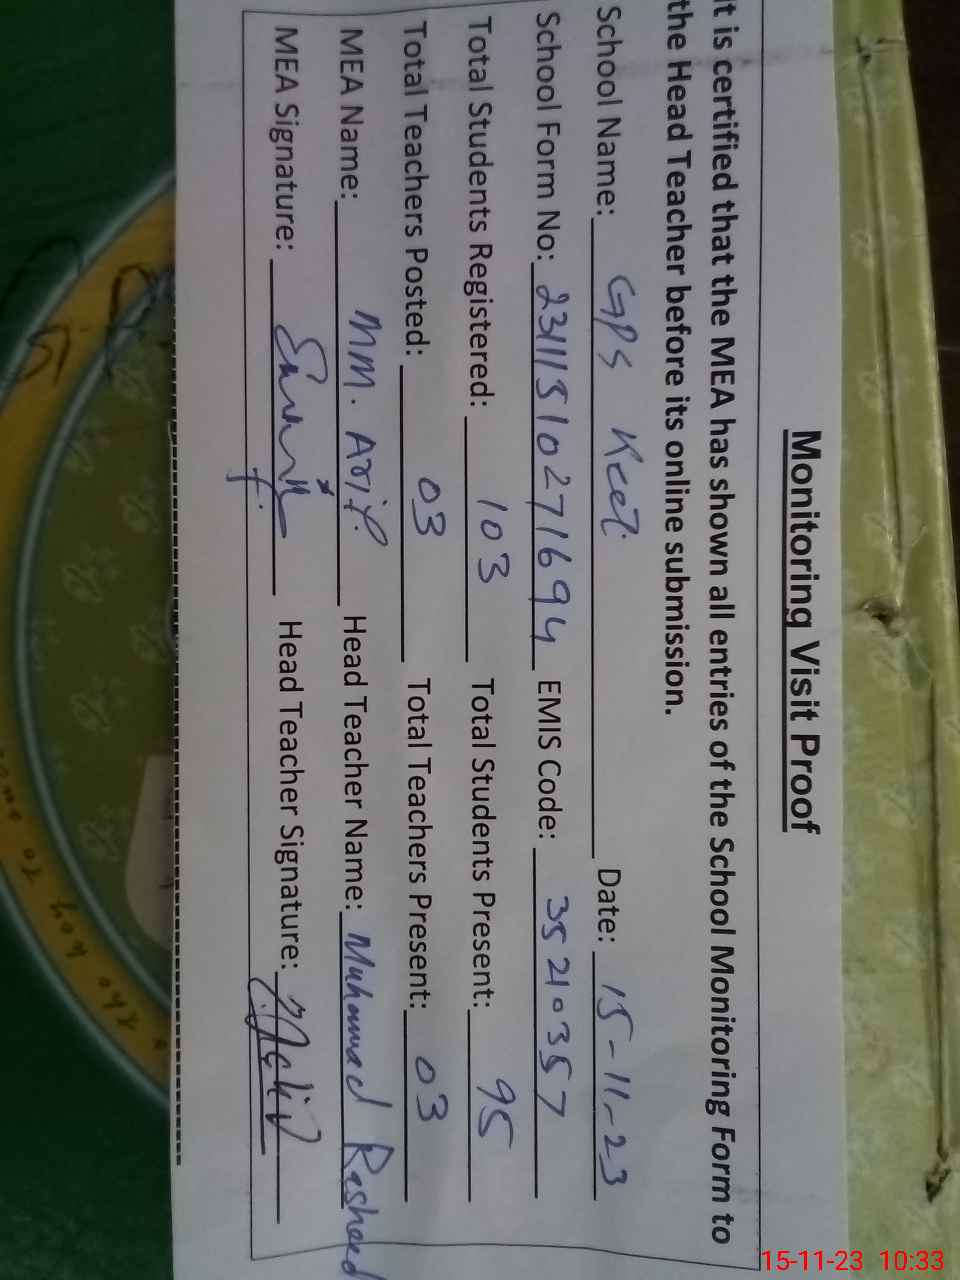 Monitoring Visit Proof
It is certified that the MEA has shown all entries of the School Monitoring Form to
the Head Teacher before its online submission.
School Name: GPS Keet Date: 15-11-23
School Form No: 231115102771694 EMIS Code: 35210357
Total Students Registered: 103 Total Students Present: 95
Total Teachers Posted: 03 Total Teachers Present: 03
MEA Name: MM. Arif Head Teacher Name: Muhammad Rasheed
MEA Signature: Head Teacher Signature:
15-11-23 10:33